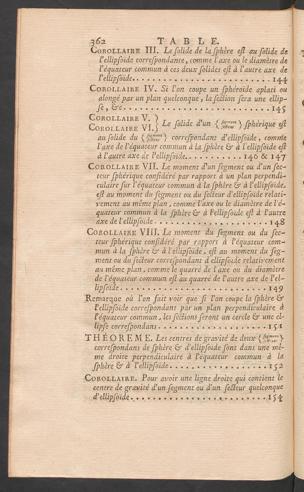 362 TABLE.
COROLLAIRE III. Le solide de la sphère est au solide de
l'ellipsoïde correspondante, comme l'axe ou le diamètre de
l'équateur commun à ces deux solides est à l'autre axe de
l'ellipsoïde. 144
COROLLAIRE IV. Si l'on coupe un sphéroïde aplati ou
alongé par un plan quelconque, la section sera une ellip-
se, &c. 145
COROLLAIRE V. }
COROLLAIRE VI. } Le solide d'un { segment secteur } sphérique est
au solide du { segment secteur } correspondant d'ellipsoïde, comme
l'axe de l'équateur commun à la sphère & à l'ellipsoïde est
à l'autre axe de l'ellipsoïde. 140 & 147
COROLLAIRE VII. Le moment d'un segment ou d'un sec-
teur sphérique considéré par rapport à un plan perpendi-
culaire sur l'équateur commun à la sphère & à l'ellipsoïde,
est au moment du segment ou du secteur d'ellipsoïde relati-
vement au même plan, comme l'axe ou le diamètre de l'é-
quateur commun à la sphère & à l'ellipsoïde est à l'autre
axe de l'ellipsoïde. 148
COROLLAIRE VIII. Le moment du segment ou du sec-
teur sphérique considéré par rapport à l'équateur com-
mun à la sphère & à l'ellipsoïde, est au moment du seg-
ment ou du secteur correspondant d'ellipsoïde relativement
au même plan, comme le quarré de l'axe ou du diamètre
de l'équateur commun est au quarré de l'autre axe de l'el-
lipsoïde. 149
Remarque où l'on fait voir que si l'on coupe la sphère &
l'ellipsoïde correspondant par un plan perpendiculaire à
l'équateur commun, les sections seront un cercle & une el-
lipse correspondans. 151
THÉOREME. Les centres de gravité de deux { segmens secteurs }
correspondans de sphère & d'ellipsoïde sont dans une mê-
me droite perpendiculaire à l'équateur commun à la
sphère & à l'ellipsoïde. 152
COROLLAIRE. Pour avoir une ligne droite qui contient le
centre de gravité d'un segment ou d'un secteur quelconque
d'ellipsoïde. 154